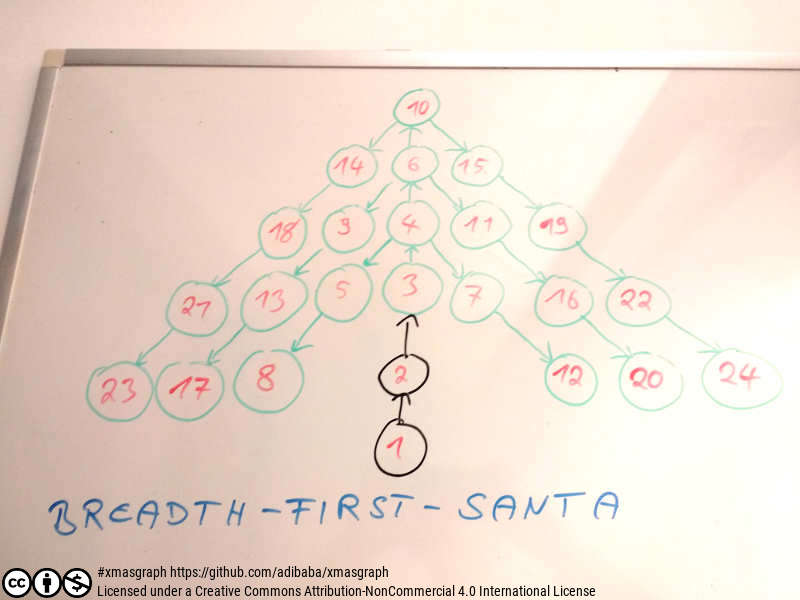 10
14 6 15
18 9 4 11 19
21 13 5 3 7 16 22
23 17 8 2 12 20 24
1
BREADTH-FIRST-SANTA
#xmasgraph https://github.com/adibaba/xmasgraph
Licensed under a Creative Commons Attribution-NonCommercial 4.0 International License